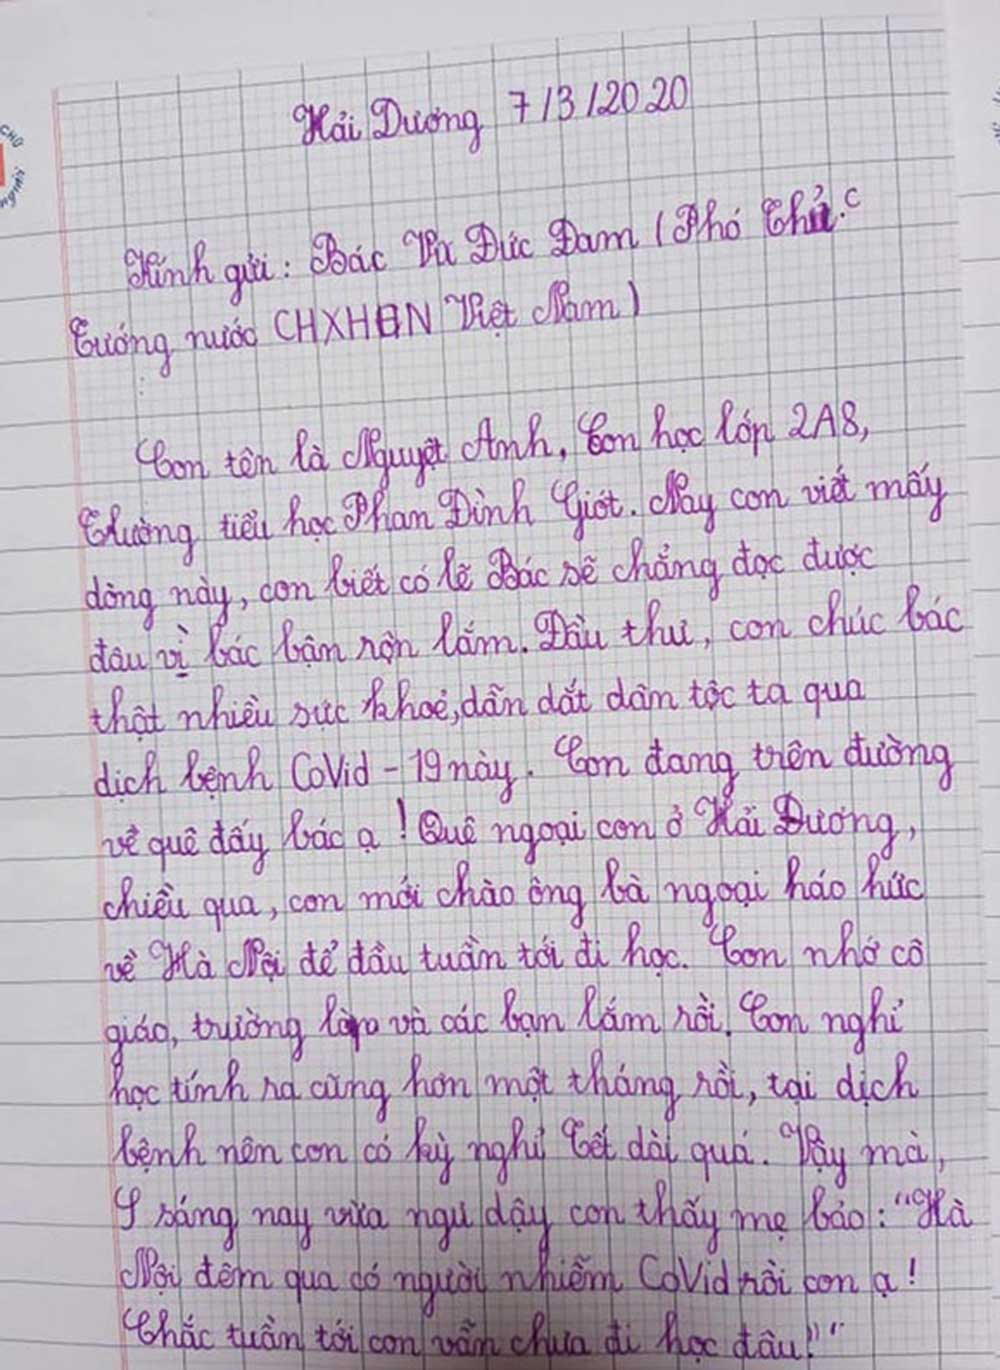 Hải Dương 7/3/2020
Kính gửi: Bác Vũ Đức Đam (Phó Thủ
Tướng nước CHXHCN Việt Nam)
Con tên là Nguyệt Anh, Con học lớp 2A8,
Trường tiểu học Phan Đình Giót. Nay con viết mấy
dòng này, con biết có lẽ Bác sẽ chẳng đọc được
đâu vì bác bận rộn lắm. Đầu thư, con chúc bác
thật nhiều sức khoẻ, dẫn dắt dân tộc ta qua
dịch bệnh CoVid - 19 này. Con đang trên đường
về quê đấy bác ạ! Quê ngoại con ở Hải Dương,
chiều qua, con mới chào ông bà ngoại háo hức
về Hà Nội để đầu tuần tới đi học. Con nhớ cô
giáo, trường lớp và các bạn lắm rồi. Con nghỉ
học tính ra cũng hơn một tháng rồi, tại dịch
bệnh nên con có kỳ nghỉ Tết dài quá. Vậy mà,
sáng nay vừa ngủ dậy con thấy mẹ bảo: "Hà
Nội đêm qua có người nhiễm CoVid rồi con ạ!
Chắc tuần tới con vẫn chưa đi học đâu!"